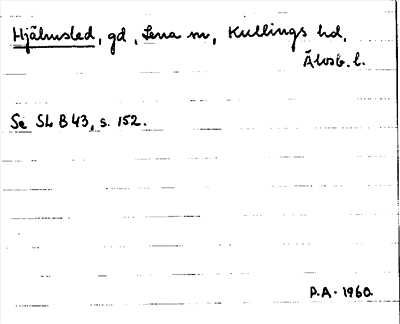 Hjälmsled, gd, Lena sn, Kullings hd,
Älvsb. l.
Se SL B 43, s. 152.
P.A. 1960.